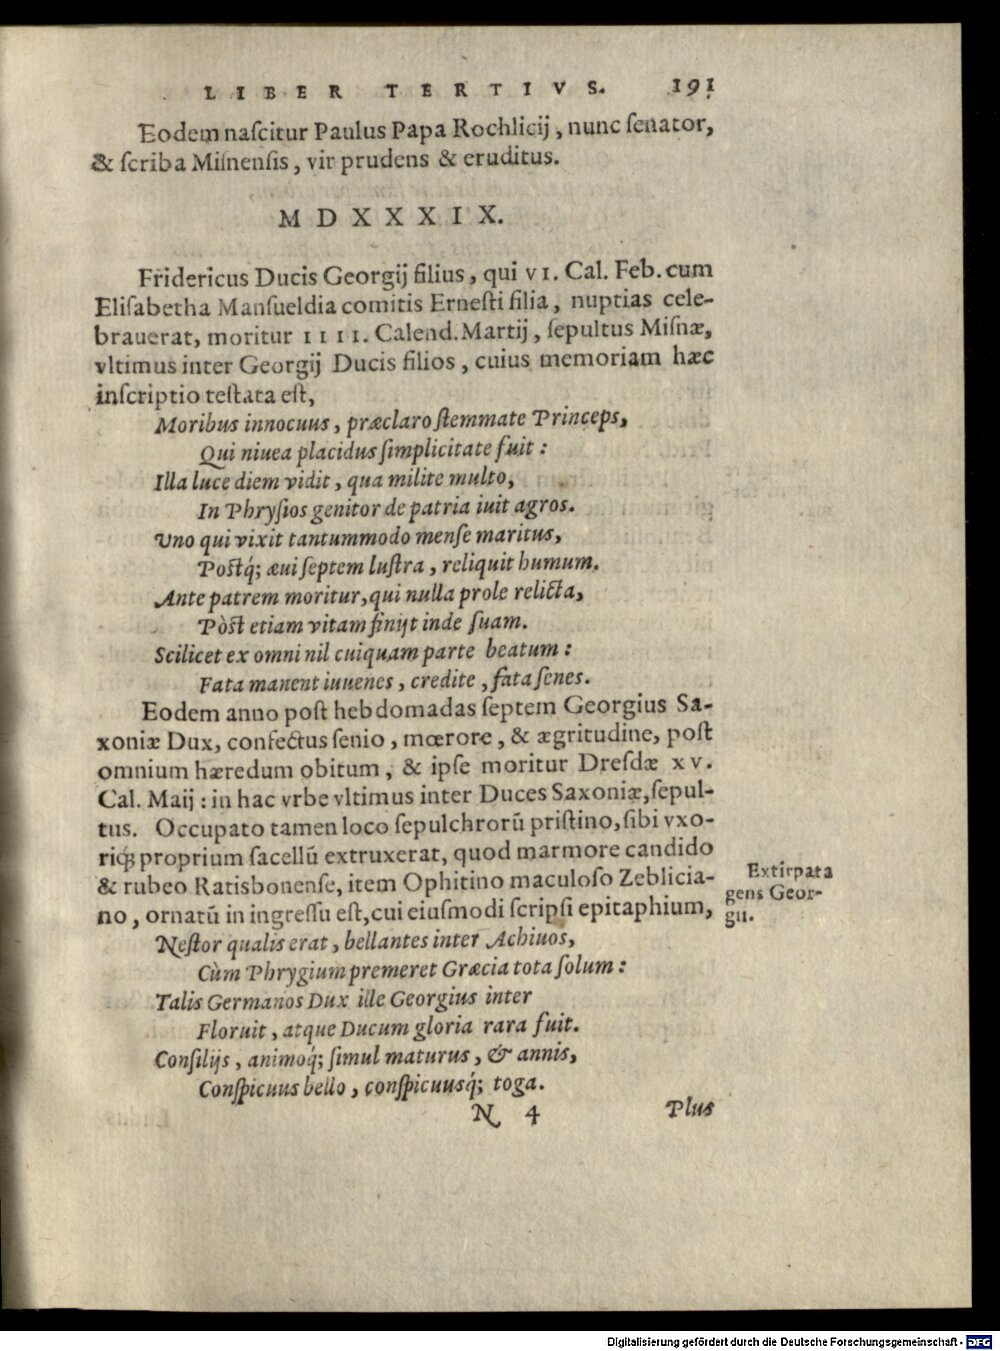 LIBER TERTIVS. 191
Eodem naſcitur Paulus Papa Rochlicij, nunc ſenator,
& ſcriba Miſnenſis, vir prudens & eruditus.
MDXXXIX.
Fridericus Ducis Georgij filius, qui VI. Cal. Feb. cum
Eliſabetha Manſueldia comitis Erneſti filia, nuptias cele-
brauerat, moritur IIII. Calend. Martij, ſepultus Miſnæ,
vltimus inter Georgij Ducis filios, cuius memoriam hæc
inſcriptio teſtata eſt,
Moribus innocuus, præclaro ſtemmate Princeps,
Qui niuea placidus ſimplicitate fuit:
Illa luce diem vidit, qua milite multo,
In Phryſios genitor de patria iuit agros.
Uno qui vixit tantummodo menſe maritus,
Poſtq́; æui ſeptem luſtra, reliquit humum.
Ante patrem moritur, qui nulla prole relicta,
Pòſt etiam vitam finijt inde ſuam.
Scilicet ex omni nil cuiquam parte beatum:
Fata manent iuuenes, credite, fata ſenes.
Eodem anno poſt hebdomadas ſeptem Georgius Sa-
xoniæ Dux, confectus ſenio, mœrore, & ægritudine, poſt
omnium hæredum obitum, & ipſe moritur Dreſdæ XV.
Cal. Maij: in hac vrbe vltimus inter Duces Saxoniæ, ſepul-
tus. Occupato tamen loco ſepulchrorū priſtino, ſibi vxo-
riq́; proprium ſacellū extruxerat, quod marmore candido
& rubeo Ratisbonenſe, item Ophitino maculoſo Zeblicia-
no, ornatū in ingreſſu eſt, cui eiuſmodi ſcripſi epitaphium,
Extirpata
gens Geor-
gii.
Neſtor qualis erat, bellantes inter Achiuos,
Cùm Phrygium premeret Græcia tota ſolum:
Talis Germanos Dux ille Georgius inter
Floruit, atque Ducum gloria rara fuit.
Conſilijs, animoq́; ſimul maturus, & annis,
Conſpicuus bello, conſpicuusq́; toga.
N 4 Plus
Digitalisierung gefördert durch die Deutsche Forschungsgemeinschaft - DFG